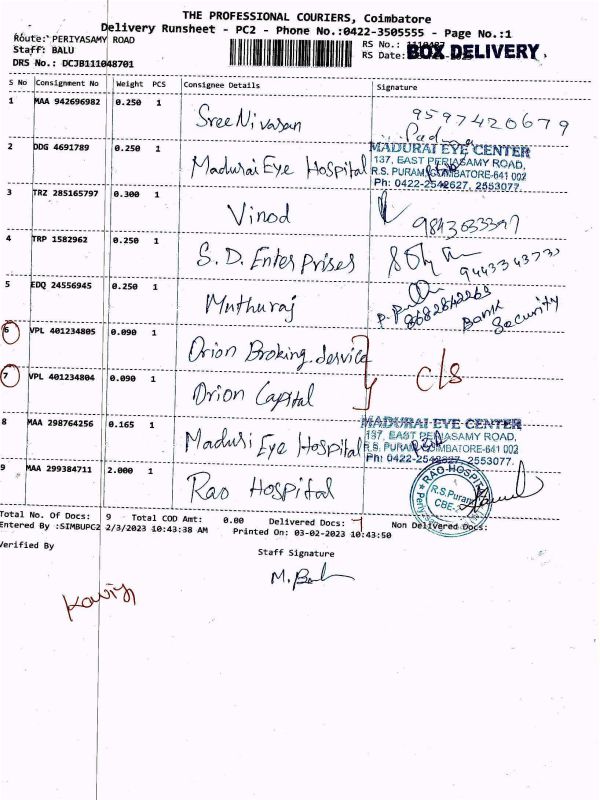 THE PROFESSIONAL COURIERS, Coimbatore
Delivery Runsheet - PC2 - Phone No.:0422-3505555 - Page No.:1
Route: PERIYASAMY ROAD
Staff: BALU
DRS No.: DCJB111048701
RS No.:
RS Date:
BOX DELIVERY
S No Consignment No Weight PCS Consignee Details Signature
1 MAA 942696982 0.250 1 Sree Nivasan 9597420679
2 DDG 4691789 0.250 1 Madurai Eye Hospital
MADURAI EYE CENTER
137, EAST PERIASAMY ROAD,
R.S. PURAM, COIMBATORE-641 002
Ph: 0422-2542627, 2553077
3 TRZ 285165797 0.300 1 Vinod
4 TRP 1582962 0.250 1 S.D. Enter Prises
5 EDQ 24556945 0.250 1 Muthuraj
Bank
Security
6 VPL 401234805 0.090 1 Orion Broking service
7 VPL 401234804 0.090 1 Orion Capital
C/S
8 MAA 298764256 0.165 1 Maduri Eye Hospital
MADURAI EYE CENTER
137, EAST PERIASAMY ROAD,
R.S. PURAM, COIMBATORE-641 002
Ph: 0422-2542627, 2553077.
9 MAA 299384711 2.000 1 Rao Hospital
RAO HOSPITAL
R.S.Puram
CBE-
Total No. Of Docs: 9 Total COD Amt: 0.00 Delivered Docs: 7 Non Delivered Docs:
Entered By :SIMBUPC2 2/3/2023 10:43:38 AM Printed On: 03-02-2023 10:43:50
Verified By
Staff Signature